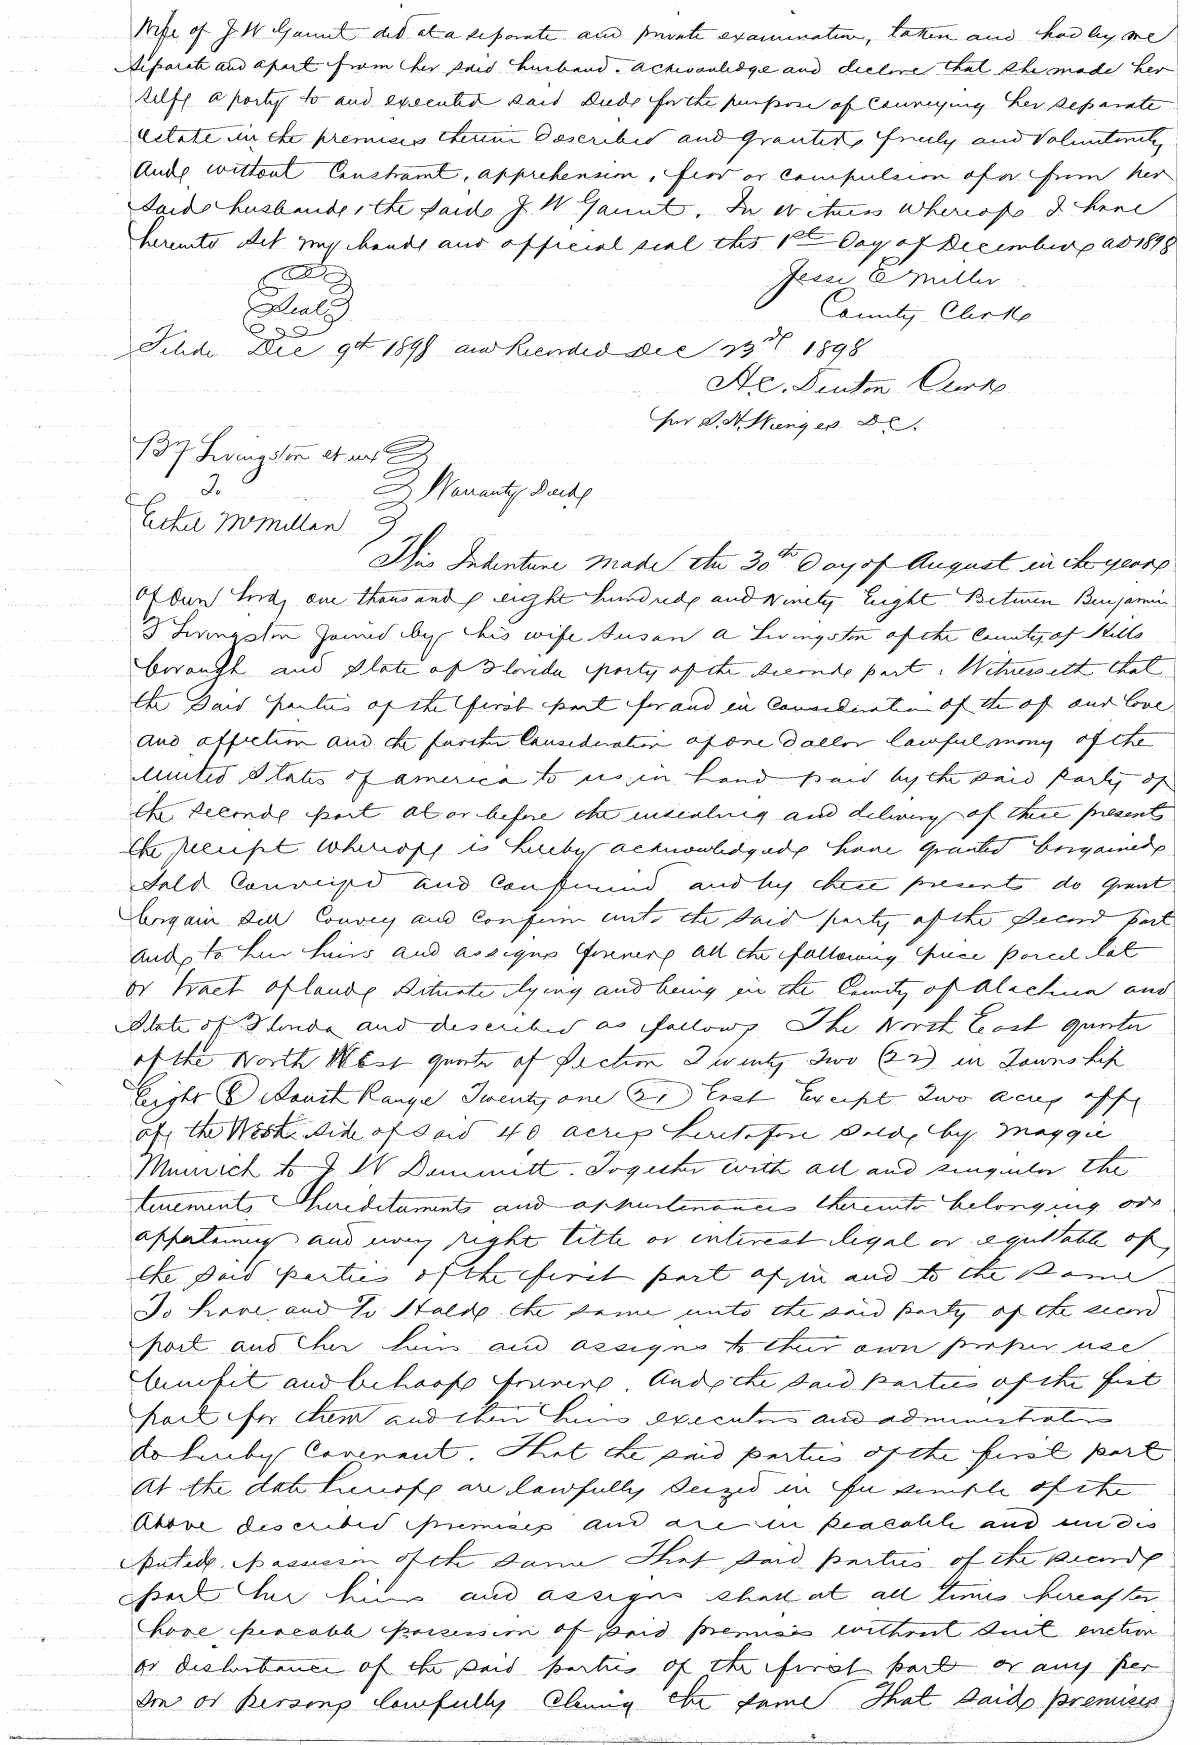 Wife of J W Gaunt did at a separate and private examination, taken and had by me
separate and apart from her said husband. acknowledge and declare that she made her
self a party to and executed said Deed for the purpose of conveying her separate
estate in the premises therein Described and granted freely and Voluntarily
And without Constraint, apprehension, fear or compulsion of or from her
said husband, the said J W Gaunt. In witness whereof I have
hereunto set my hand and official seal this 1st Day of December AD 1898
Jesse E Miller
Seal
County Clerk
Filed Dec 9th 1898 and Recorded Dec 23rd 1898
H.C. Denton Clerk
per S.H. Wienges D.C.
B F Livingston et ux
To
Warranty Deed
Ethel McMillan
This Indenture made the 30th Day of August in the year
of Our Lord, one thousand eight hundred and Ninety Eight Between Benjamin
F Livingston Joined by his wife Susan A Livingston of the County of Hills
borough and State of Florida party of the second part. Witnesseth that
the said parties of the first part for and in Consideration of the of our love
and affection and the further Consideration of one dollar lawful mony of the
United States of America to us in hand paid by the said Party of
the second part at or before the ensealing and delivery of these presents
the receipt whereof is hereby acknowledged have granted bargained
sold Conveyed and confirmed and by these presents do grant
bargain sell Convey and confirm unto the said party of the Second part
and to her heirs and assigns forever all the following piece parcel lot
or tract of land situate lying and being in the County of Alachua and
State of Florida and described as follows The North East quarter
of the North West quarter of Section Twenty Two (22) in Township
Eight (8) South Range Twenty one (21) East Except Two acres off
of the West side of said 40 acres heretofore sold by Maggie
Minnich to J W Demmitt. Together with all and singular the
tenements hereditaments and appurtenances thereunto belonging or
appertaining and every right title or interest legal or equitable of
the said parties of the first part of, in and to the same
To have and To Hold the same unto the said party of the second
part and her heirs and assigns to their own proper use
benefit and behoof forever. And the said Parties of the first
part for them and their heirs executors and administrators
do hereby Covenant. That the said parties of the first part
At the date hereof are lawfully seized in fee simple of the
Above described premises and are in peacable and undis
puted possession of the same That said parties of the second
part her heirs and assigns shall at all times hereafter
have peacable possession of said premises without suit eviction
or disturbance of the said parties of the first part or any per
son or persons lawfully Claming the same That said premises